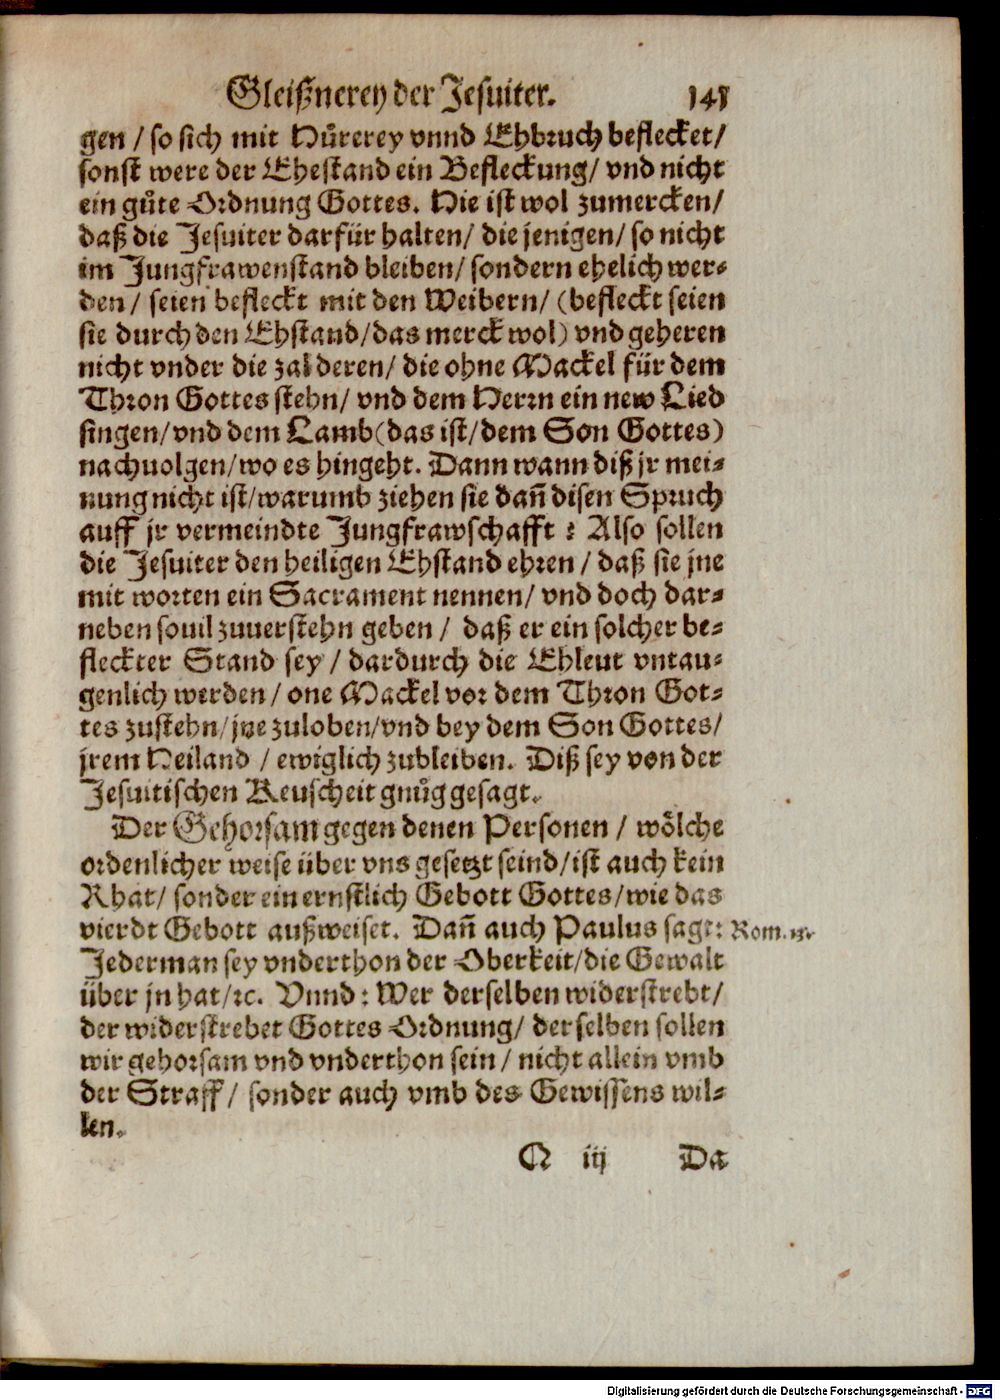 Gleißnerey der Jesuiter. 141
gen / so sich mit Hůrerey vnnd Ehbruch beflecket/
sonst were der Ehestand ein Befleckung/ vnd nicht
ein gůte Ordnung Gottes. Hie ist wol zumercken/
daß die Jesuiter darfür halten/ die jenigen/ so nicht
im Jungfrawenstand bleiben/ sondern ehelich wer-
den/ seien befleckt mit den Weibern/ (befleckt seien
sie durch den Ehstand/das merck wol) vnd geheren
nicht vnder die zal deren/ die ohne Mackel für dem
Thron Gottes stehn/ vnd dem Herrn ein new Lied
singen/vnd dem Lamb(das ist/dem Son Gottes)
nachuolgen/wo es hingeht. Dann wann diß jr mei-
nung nicht ist/warumb ziehen sie dañ disen Spruch
auff jr vermeindte Jungfrawschafft ? Also sollen
die Jesuiter den heiligen Ehstand ehren / daß sie jne
mit worten ein Sacrament nennen/ vnd doch dar-
neben souil zuuerstehn geben / daß er ein solcher be-
fleckter Stand sey / dardurch die Ehleut vntau-
genlich werden/ one Mackel vor dem Thron Got-
tes zustehn/jne zuloben/vnd bey dem Son Gottes/
jrem Heiland / ewiglich zubleiben. Diß sey von der
Jesuitischen Keuscheit gnůg gesagt.
Der Gehorsam gegen denen Personen / wölche
ordenlicher weise über vns gesetzt seind/ist auch kein
Rhat/ sonder ein ernstlich Gebott Gottes/wie das
vierdt Gebott außweiset. Dañ auch Paulus sagt: Rom.
Jederman sey vnderthon der Oberkeit/die Gewalt
über jn hat/ꝛc. Vnnd : Wer derselben widerstrebt/
der widerstrebet Gottes Ordnung/ derselben sollen
wir gehorsam vnd vnderthon sein/ nicht allein vmb
der Straff/ sonder auch vmb des Gewissens wil-
len.
N iij Da
Digitalisierung gefördert durch die Deutsche Forschungsgemeinschaft - DFG